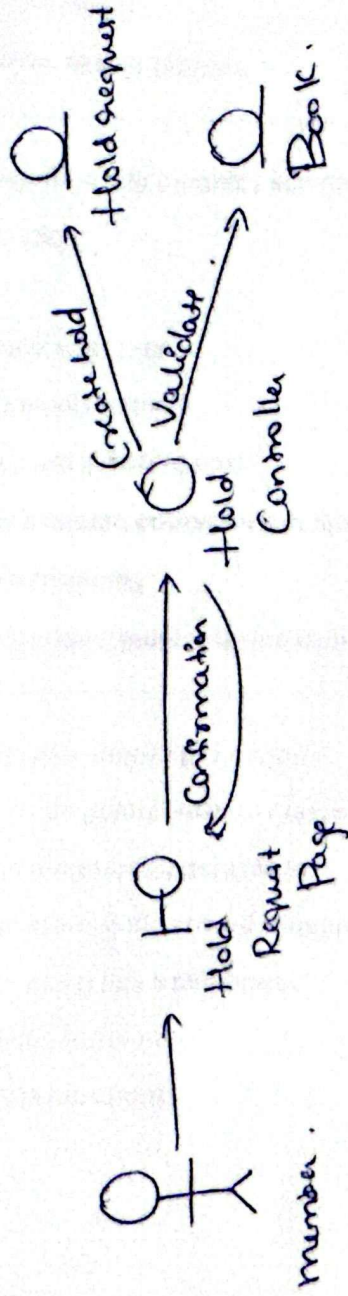 member.
Hold
Request
Page
Confirmation
Hold
Controller
Create hold
Validate.
Hold request
Book.